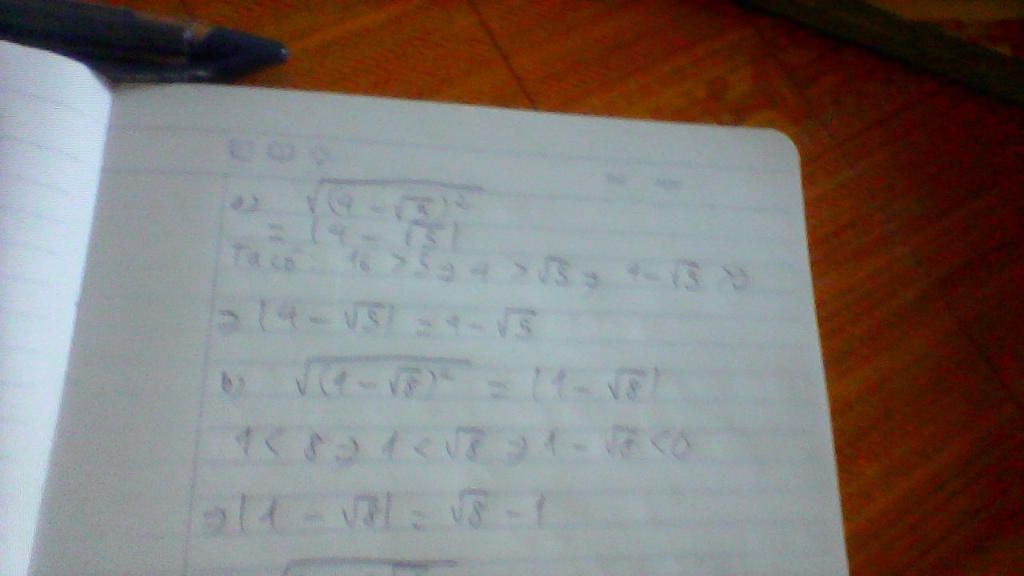 a) √(4 - √5)²
= |4 - √5|
Ta có: 16 > 5 => 4 > √5 => 4 - √5 > 0
=> |4 - √5| = 4 - √5
b) √(1 - √8)² = |1 - √8|
1 < 8 => 1 < √8 => 1 - √8 < 0
=> |1 - √8| = √8 - 1